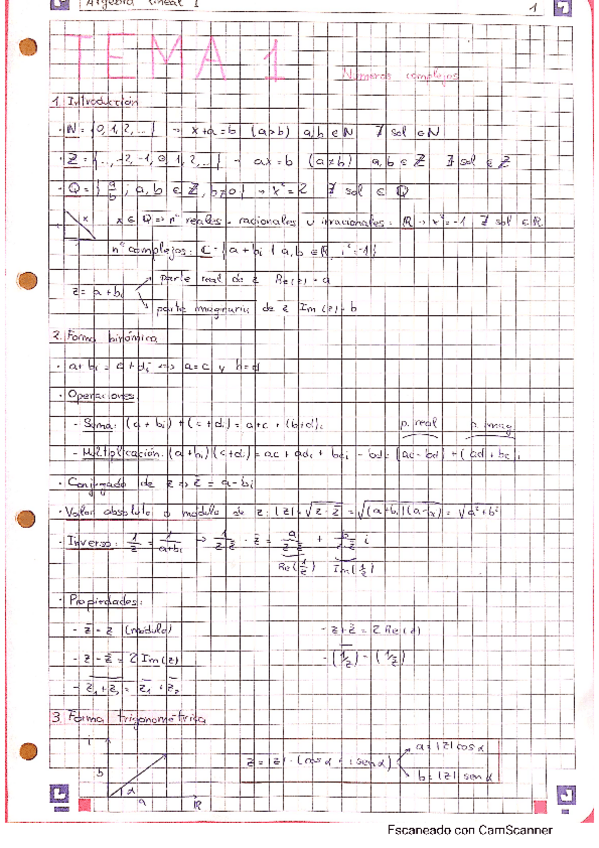 Algebra Lineal I
1
TEMA 1
Números complejos
1. Introducción
· ℕ = {0, 1, 2, ...} → x+a=b (a>b) a,b ∈ ℕ ∄ sol ∈ ℕ
· ℤ = {..., -2, -1, 0, 1, 2, ...} → ax=b (a≠b) a,b ∈ ℤ ∄ sol ∈ ℤ
· Q = { a/b ; a, b ∈ ℤ, b≠0} → x²=2 ∄ sol ∈ Q
x x ∈ Q ⇒ nº reales = racionales u irracionales: ℝ → x²=-1 ∄ sol ∈ ℝ
nº complejos: ℂ = {a+bi | a,b ∈ ℝ, i²=-1}
parte real de z Re(z) = a
z = a+bi
parte imaginaria de z Im(z) = b
2. Forma binómica
· a+bi = c+di ⇔ a=c y b=d
· Operaciones:
- Suma: (a+bi) + (c+di) = a+c + (b+d)i p. real p. imag
- Multiplicación: (a+bi)(c+di) = ac + adi + bci - bd = (ac-bd) + (ad+bc)i
· Conjugado de z ⇒ z̄ = a-bi
· Valor absoluto o módulo de z: |z| = √(z·z̄) = √((a+bi)(a-bi)) = √(a²+b²)
· Inverso: 1/z = 1/(a+bi) → 1/(z·z̄) · z̄ = a/(z·z̄) + b/(z·z̄) i
Re(1/z) Im(1/z)
· Propiedades:
- z̄ = z (módulo) - z+z̄ = 2 Re(z)
- z-z̄ = 2 Im(z) - (1/z) = (1/z̄)
- z₁+z₂ = z̄₁ + z̄₂
3. Forma trigonométrica
i
b
α
a ℝ
a = |z| cos α
z = |z| · (cos α + i sen α)
b = |z| sen α
Escaneado con CamScanner